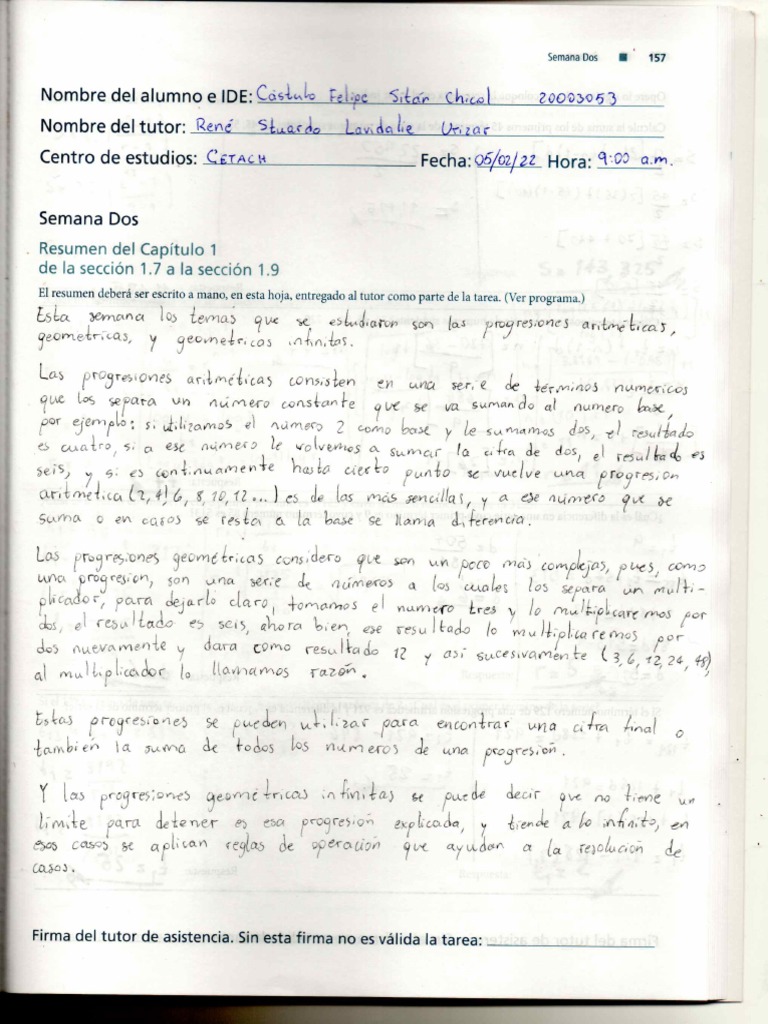 Semana Dos ■ 157
Nombre del alumno e IDE: Cástulo Felipe Sitán Chicol 20003053
Nombre del tutor: René Stuardo Lavidalie Urizar
Centro de estudios: CETACH Fecha: 05/02/22 Hora: 9:00 a.m.
Semana Dos
Resumen del Capítulo 1
de la sección 1.7 a la sección 1.9
El resumen deberá ser escrito a mano, en esta hoja, entregado al tutor como parte de la tarea. (Ver programa.)
Esta semana los temas que se estudiaron son las progresiones aritméticas,
geometricas, y geometricas infinitas.
Las progresiones aritméticas consisten en una serie de términos numericos
que los separa un número constante que se va sumando al numero base,
por ejemplo: si utilizamos el número 2 como base y le sumamos dos, el resultado
es cuatro, si a ese número le volvemos a sumar la cifra de dos, el resultado es
seis, y si es continuamente hasta cierto punto se vuelve una progresion
aritmética (2, 4, 6, 8, 10, 12 ...) es de las más sencillas, y a ese número que se
suma o en casos se resta a la base se llama diferencia.
Las progresiones geométricas considero que son un poco más complejas, pues, como
una progresion, son una serie de números a los cuales los separa un multi-
plicador, para dejarlo claro, tomamos el numero tres y lo multiplicaremos por
dos, el resultado es seis, ahora bien, ese resultado lo multiplicaremos por
dos nuevamente y dara como resultado 12 y así sucesivamente (3, 6, 12, 24, 48),
al multiplicador lo llamamos razón.
Estas progresiones se pueden utilizar para encontrar una cifra final o
tambien la suma de todos los numeros de una progresión.
Y las progresiones geométricas infinitas se puede decir que no tiene un
límite para detener es esa progresión explicada, y tiende a lo infinito, en
esos casos se aplican reglas de operación que ayudan a la resolución de
casos.
Firma del tutor de asistencia. Sin esta firma no es válida la tarea: